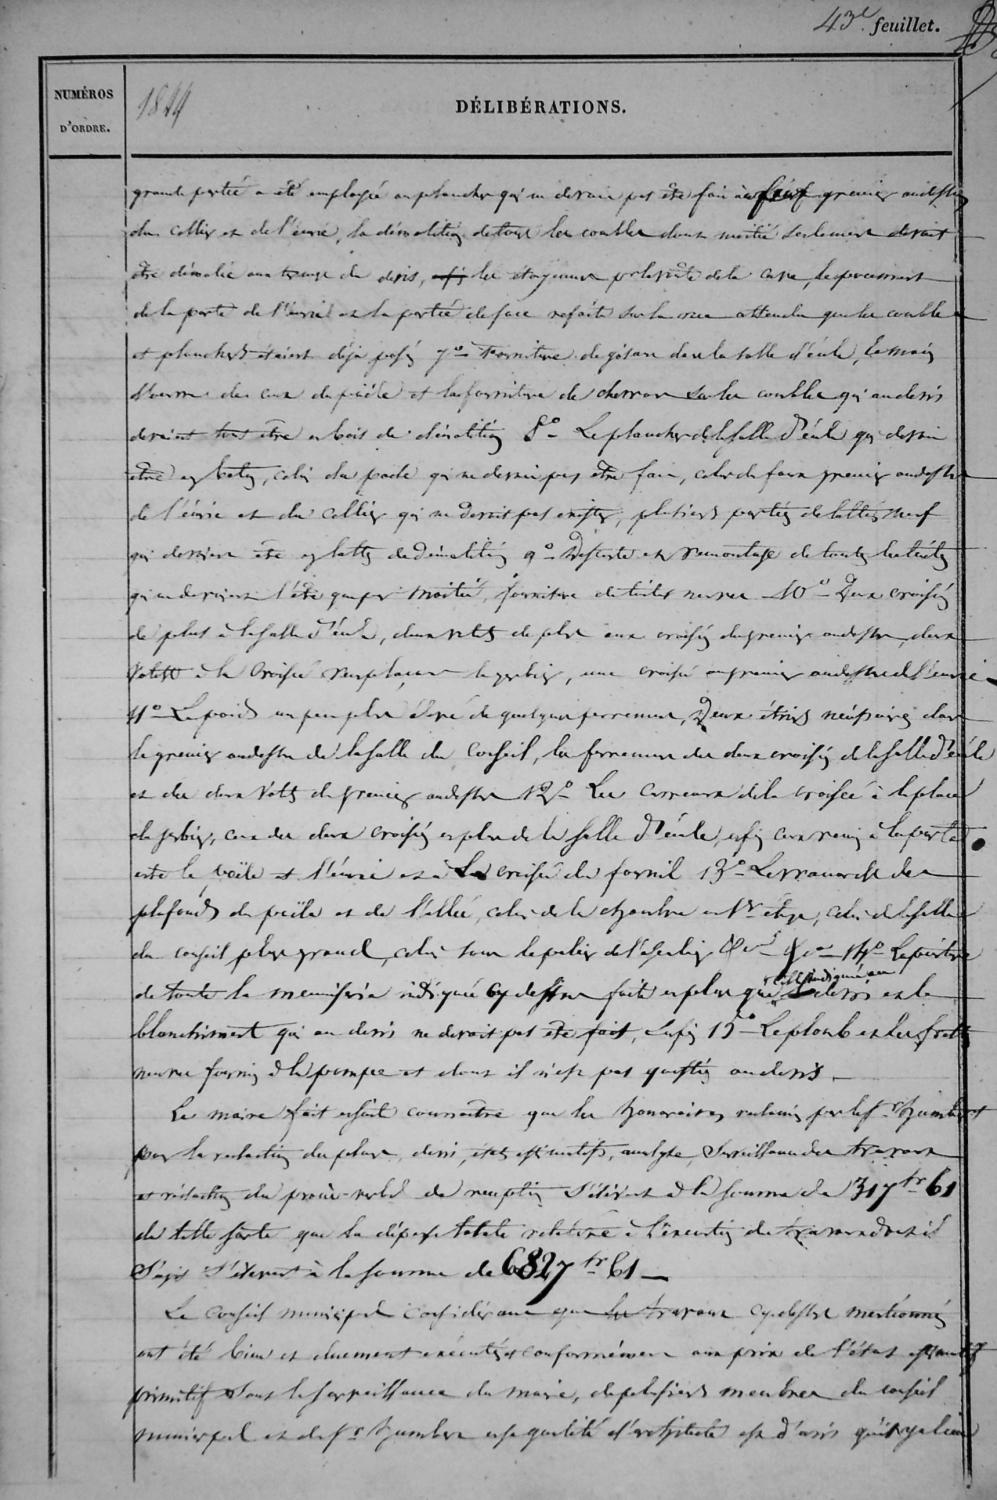 43e feuillet.
NUMÉROS
D'ORDRE.
1844
DÉLIBÉRATIONS.
grande partie a été employée au plancher qui ne devait pas être fait grenier au dessus
du cellier et de l'écurie, la démolition de tous les combles dont moitié seulement devait
être démolie aux termes du devis, les de la cave, le percement
de la porte de l'écurie et la partie de face refaite sur la rue attendu que les combles
et planchers étaient déjà posés 7o Fourniture de gitage dans la salle d'école, la main
d'œuvre de ceux du poële et la fourniture de chevrons sur les combles qui au devis
devaient tous être en bois de démolition 8o Le plancher de la salle d'école qui devait
être en , celui du poële qui ne devait pas être fait, celui du faux grenier au dessus
de l'écurie et du cellier qui ne devait pas exister, plusieurs parties de lattis neuf
qui devaient être en lattes de démolition 9o Descente et remontage de toutes les tuiles
qui ne devaient l'être que par moitié, fourniture de tuiles neuves 10o Deux croisées
de plus à la salle d'école, deux volets de plus aux croisées du grenier au dessus, deux
volets à la croisée remplaçant le gerbier, une croisée au grenier au dessus de l'écurie
11o Le poids un peu plus élevé de quelques ferrements, Deux étriers nécessaires dans
le grenier au dessus de la salle du conseil, la ferrements des deux croisées de la salle d'école
et des deux volets du grenier au dessus 12o Les carreaux de la croisée à la place
du gerbier, ceux des deux croisées en plus de la salle d'école, enfin ceux à la porte
entre le poële et l'écurie et à la croisée du fournil 13o Le des
plafonds du poële et de l'allée, celui de la chambre au 1er étage, celui de la salle
du conseil plus grand, celui sous le palier de l'escalier &a &a 14o La peinture
de toute la menuiserie indiquée cy dessus faite en plus que celle indiquée au devis et le
blanchiment qui au devis ne devait pas être fait, Enfin 15o Le plomb et les
neuves fournis à la pompe et dont il n'est pas question au devis.
Le maire fait ensuite connaître que les honoraires réclamés par le Sr Humbert
pour la rédaction du plan, devis, états estimatifs, analyse, surveillance des travaux
et rédaction du procès-verbal de réception s'élèvent à la somme de 317 fr 61
de telle sorte que la dépense totale relative à l'exécution des travaux dont il
s'agit s'élèvent à la somme de 6827 fr 61
Le conseil municipal considérant que les travaux cy dessus mentionnés
ont été bien et duement exécutés et conformément aux prix de l'état estimatif
primitif sous la surveillance du maire, de plusieurs membres du conseil
municipal et du Sr Humbert en sa qualité d'architecte est d'avis qu'il y a lieu